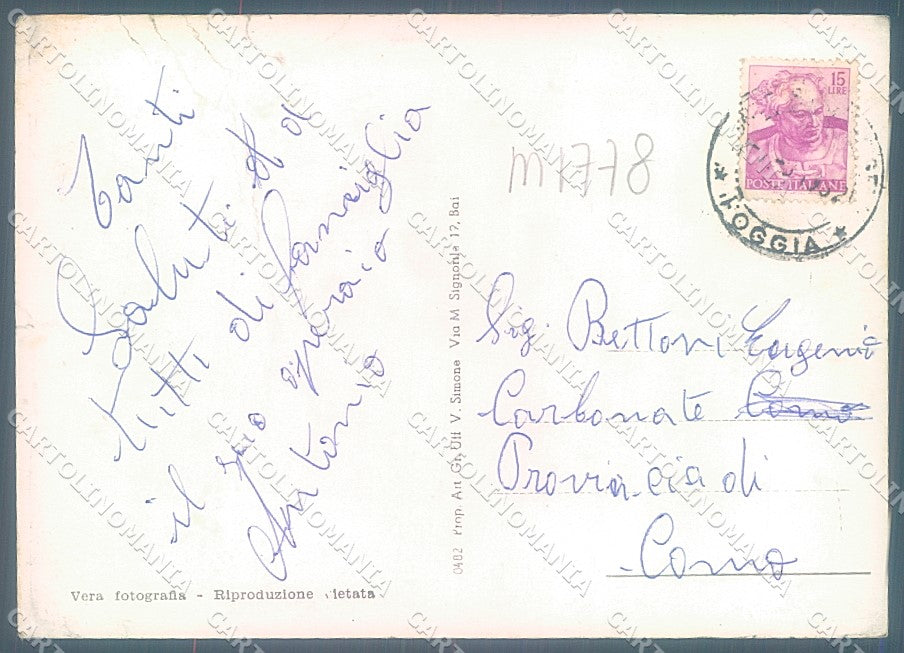 Tanti
Saluti a
tutti di famiglia
il suo operaio
Antonio
Vera fotografia - Riproduzione vietata
0482 Prop. Art. Gr. Uff V. Simone Via M Signorile 17, Bai
m1778
15
LIRE
POSTE ITALIANE
FOGGIA
Sig. Bettoni Eugenio
Carbonate Como
Provincia di
Como
CARTOLINOMANIA